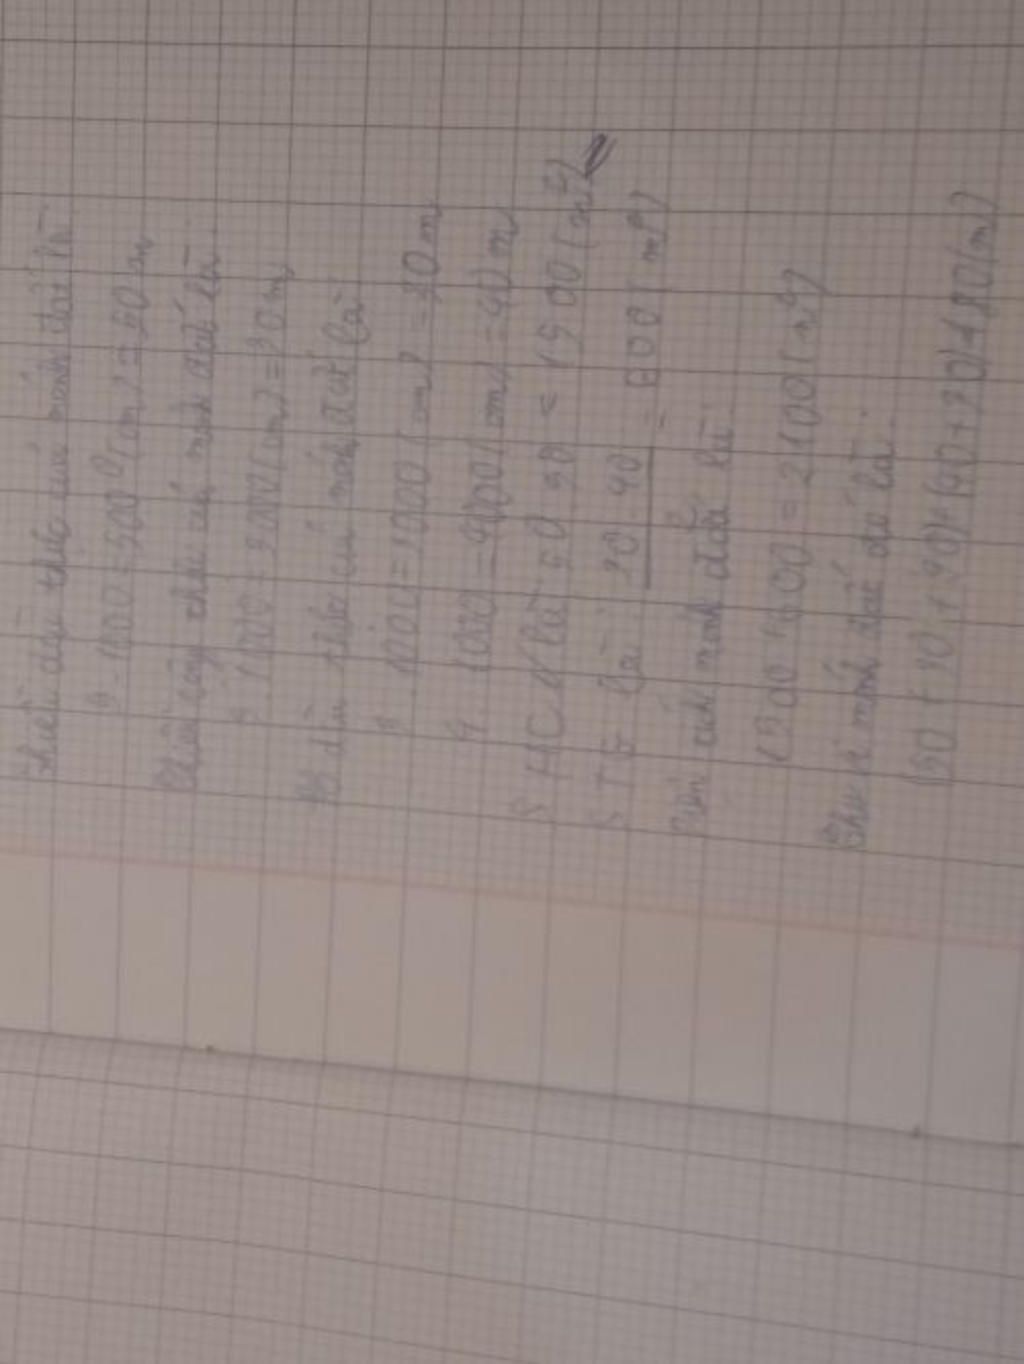 Chiều dài thực của mảnh đất là
5.1000=5000(cm)=50m
Chiều rộng thực của mảnh đất là
3.1000=3000(cm)=30m
độ dài thực của mảnh đất là
3.1000=3000(cm)=30m
4.1000=4000(cm)=40m
S HCN là 50.30 = 1500(m²)
STG là: 30.40 = 600(m²)
Diện tích mảnh đất là
1500+600=2100(m²)
Chu vi mảnh đất đó là:
(50+30)+(40+30)=180(m)